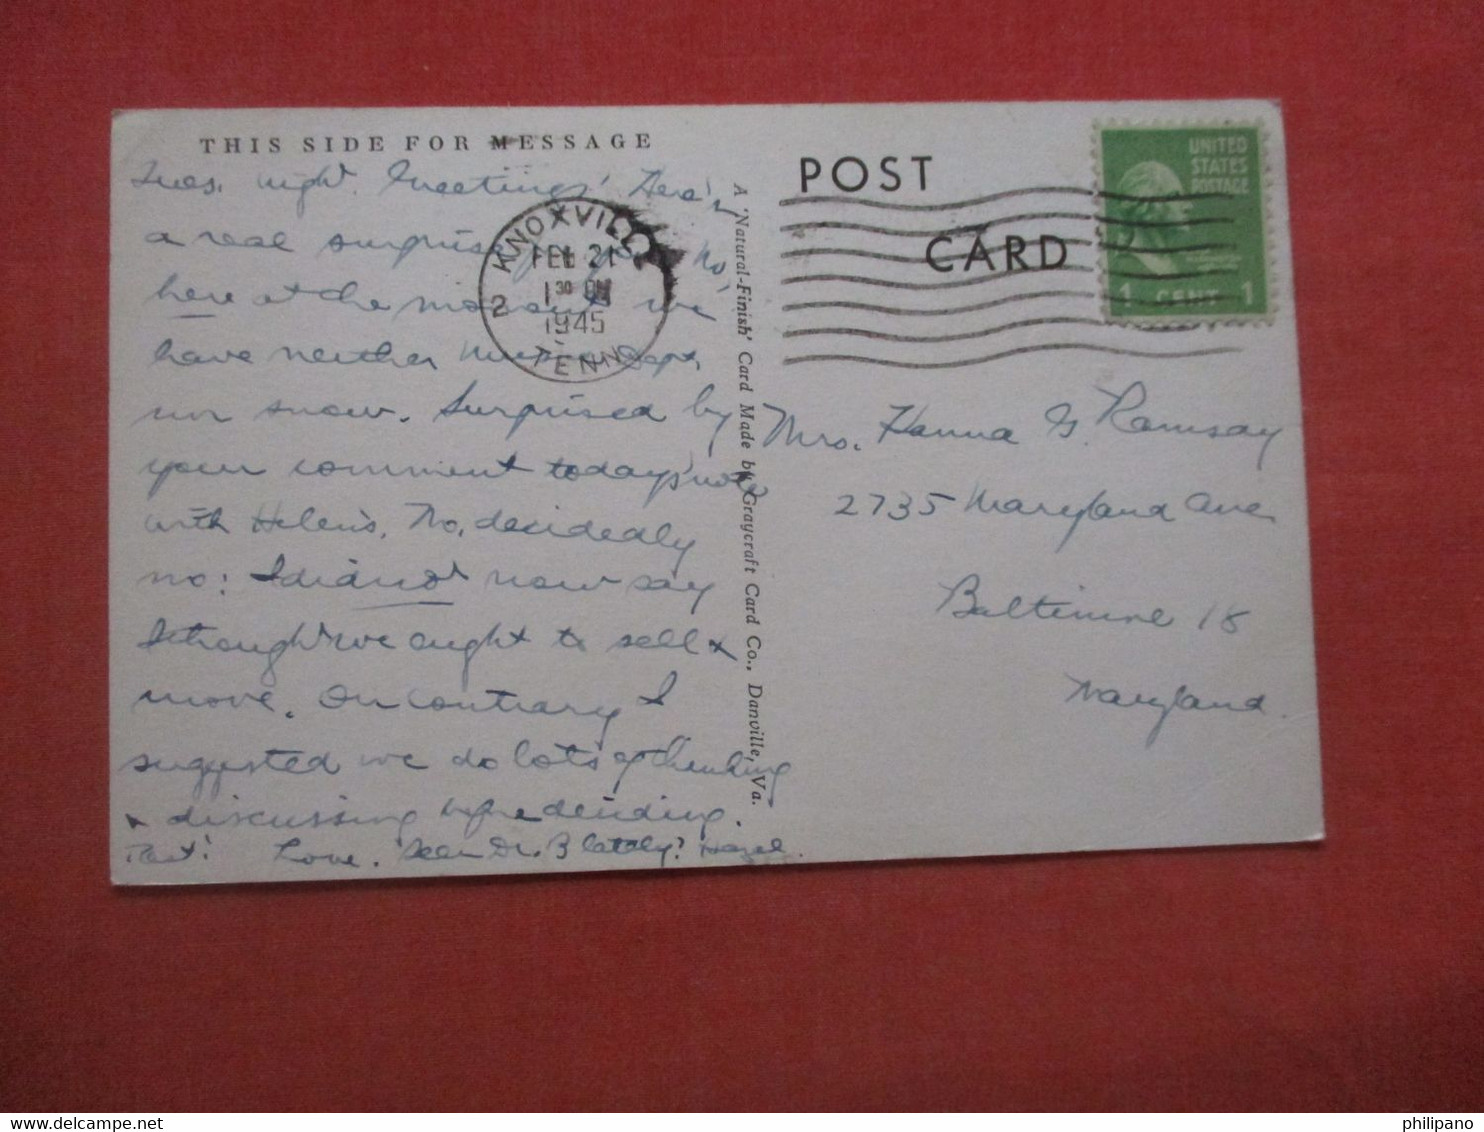 THIS SIDE FOR MESSAGE
Tues. night. Greetings! Here's
a real surprise for you. No,
here at the moment we
have neither
nor snow. Surprised by
your comment today's note
with Helen's. No, decidedly
no: I did not now say
I thought we ought to sell &
move. On contrary I
suggested we do lots of thinking
& discussing before deciding.
Love. Seen Dr. B lately? Hazel.
KNOXVILLE
2
FEB 21
1 30 PM
1945
TENN.
A 'Natural-Finish' Card Made by Graycraft Card Co., Danville, Va.
POST
CARD
UNITED
STATES
POSTAGE
1 CENT 1
Mrs. Hanna G. Ramsay
2735 Maryland Ave
Baltimore 18
Maryland.
philipano